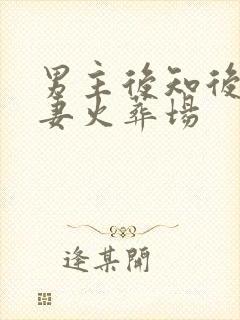 男主後知後
妻火葬場
逢某開